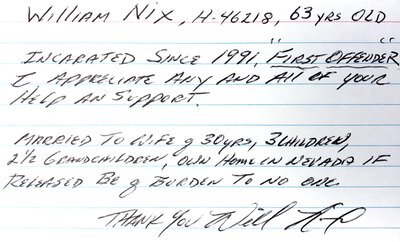 WILLIAM NIX, H-46218, 63 YRS OLD
INCARATED SINCE 1991, "FIRST OFFENDER"
I APPRECIATE ANY AND All OF YOUR
HELP AN SUPPORT.
MARRIED TO WIFE of 30 yrs, 3 CHILDREN,
2 1/2 GRANDCHILDREN, OWN HOME IN NEVADA IF
RELEASED BE of BURDEN TO NO ONE
THANK YOU Will